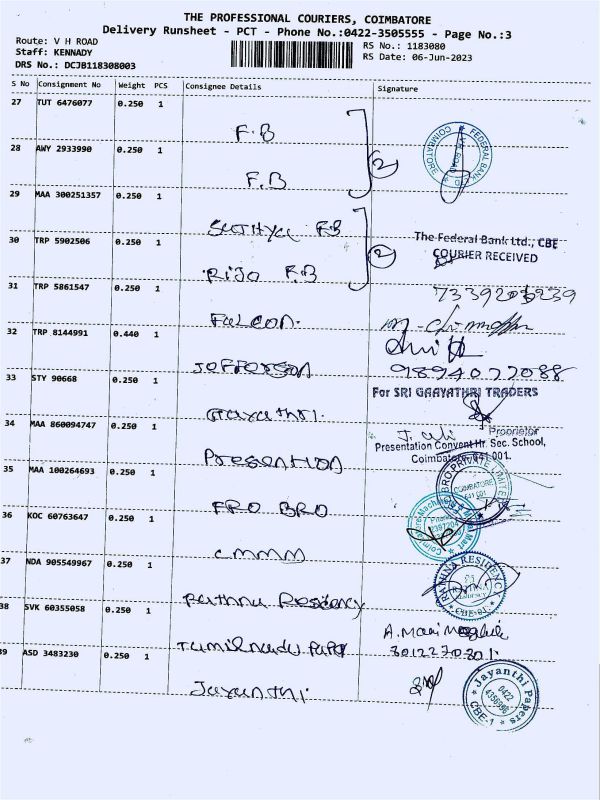 THE PROFESSIONAL COURIERS, COIMBATORE
Delivery Runsheet - PCT - Phone No.:0422-3505555 - Page No.:3
Route: V H ROAD
Staff: KENNADY
DRS No.: DCJB118308003
RS No.: 1183080
RS Date: 06-Jun-2023
S No Consignment No Weight PCS Consignee Details Signature
27 TUT 6476077 0.250 1
F.B
28 AWY 2933990 0.250 1
F.B
2
COIMBATORE FEDERAL BANK LTD
29 MAA 300251357 0.250 1
Sathya F.B
30 TRP 5902506 0.250 1
Rijo F.B
2
The Federal Bank Ltd., CBE
COURIER RECEIVED
31 TRP 5861547 0.250 1
Falcon.
32 TRP 8144991 0.440 1
Jefferson
9894077088
33 STY 90668 0.250 1
Gayathri.
For SRI GAAYATHRI TRADERS
Proprietor
34 MAA 860094747 0.250 1
Presention
Presentation Convent Hr. Sec. School,
Coimbatore, 641 001.
35 MAA 100264693 0.250 1
FRO BRO
BRO PRIVATE LIMITED
COIMBATORE
641 001
36 KOC 60763647 0.250 1
CMMM
37 NDA 905549967 0.250 1
Rathna Residency
RATHNA RESIDENCY
CBE-01
38 SVK 60355058 0.250 1
Tamilnadu
39 ASD 3483230 0.250 1
Jayanthi.
Jayanthi Papers
0422
CBE-1